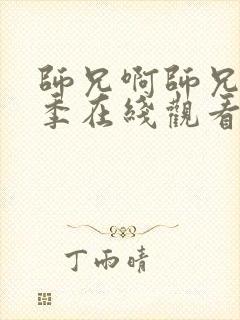 師兄啊師兄
季在綫觀看
丁雨晴